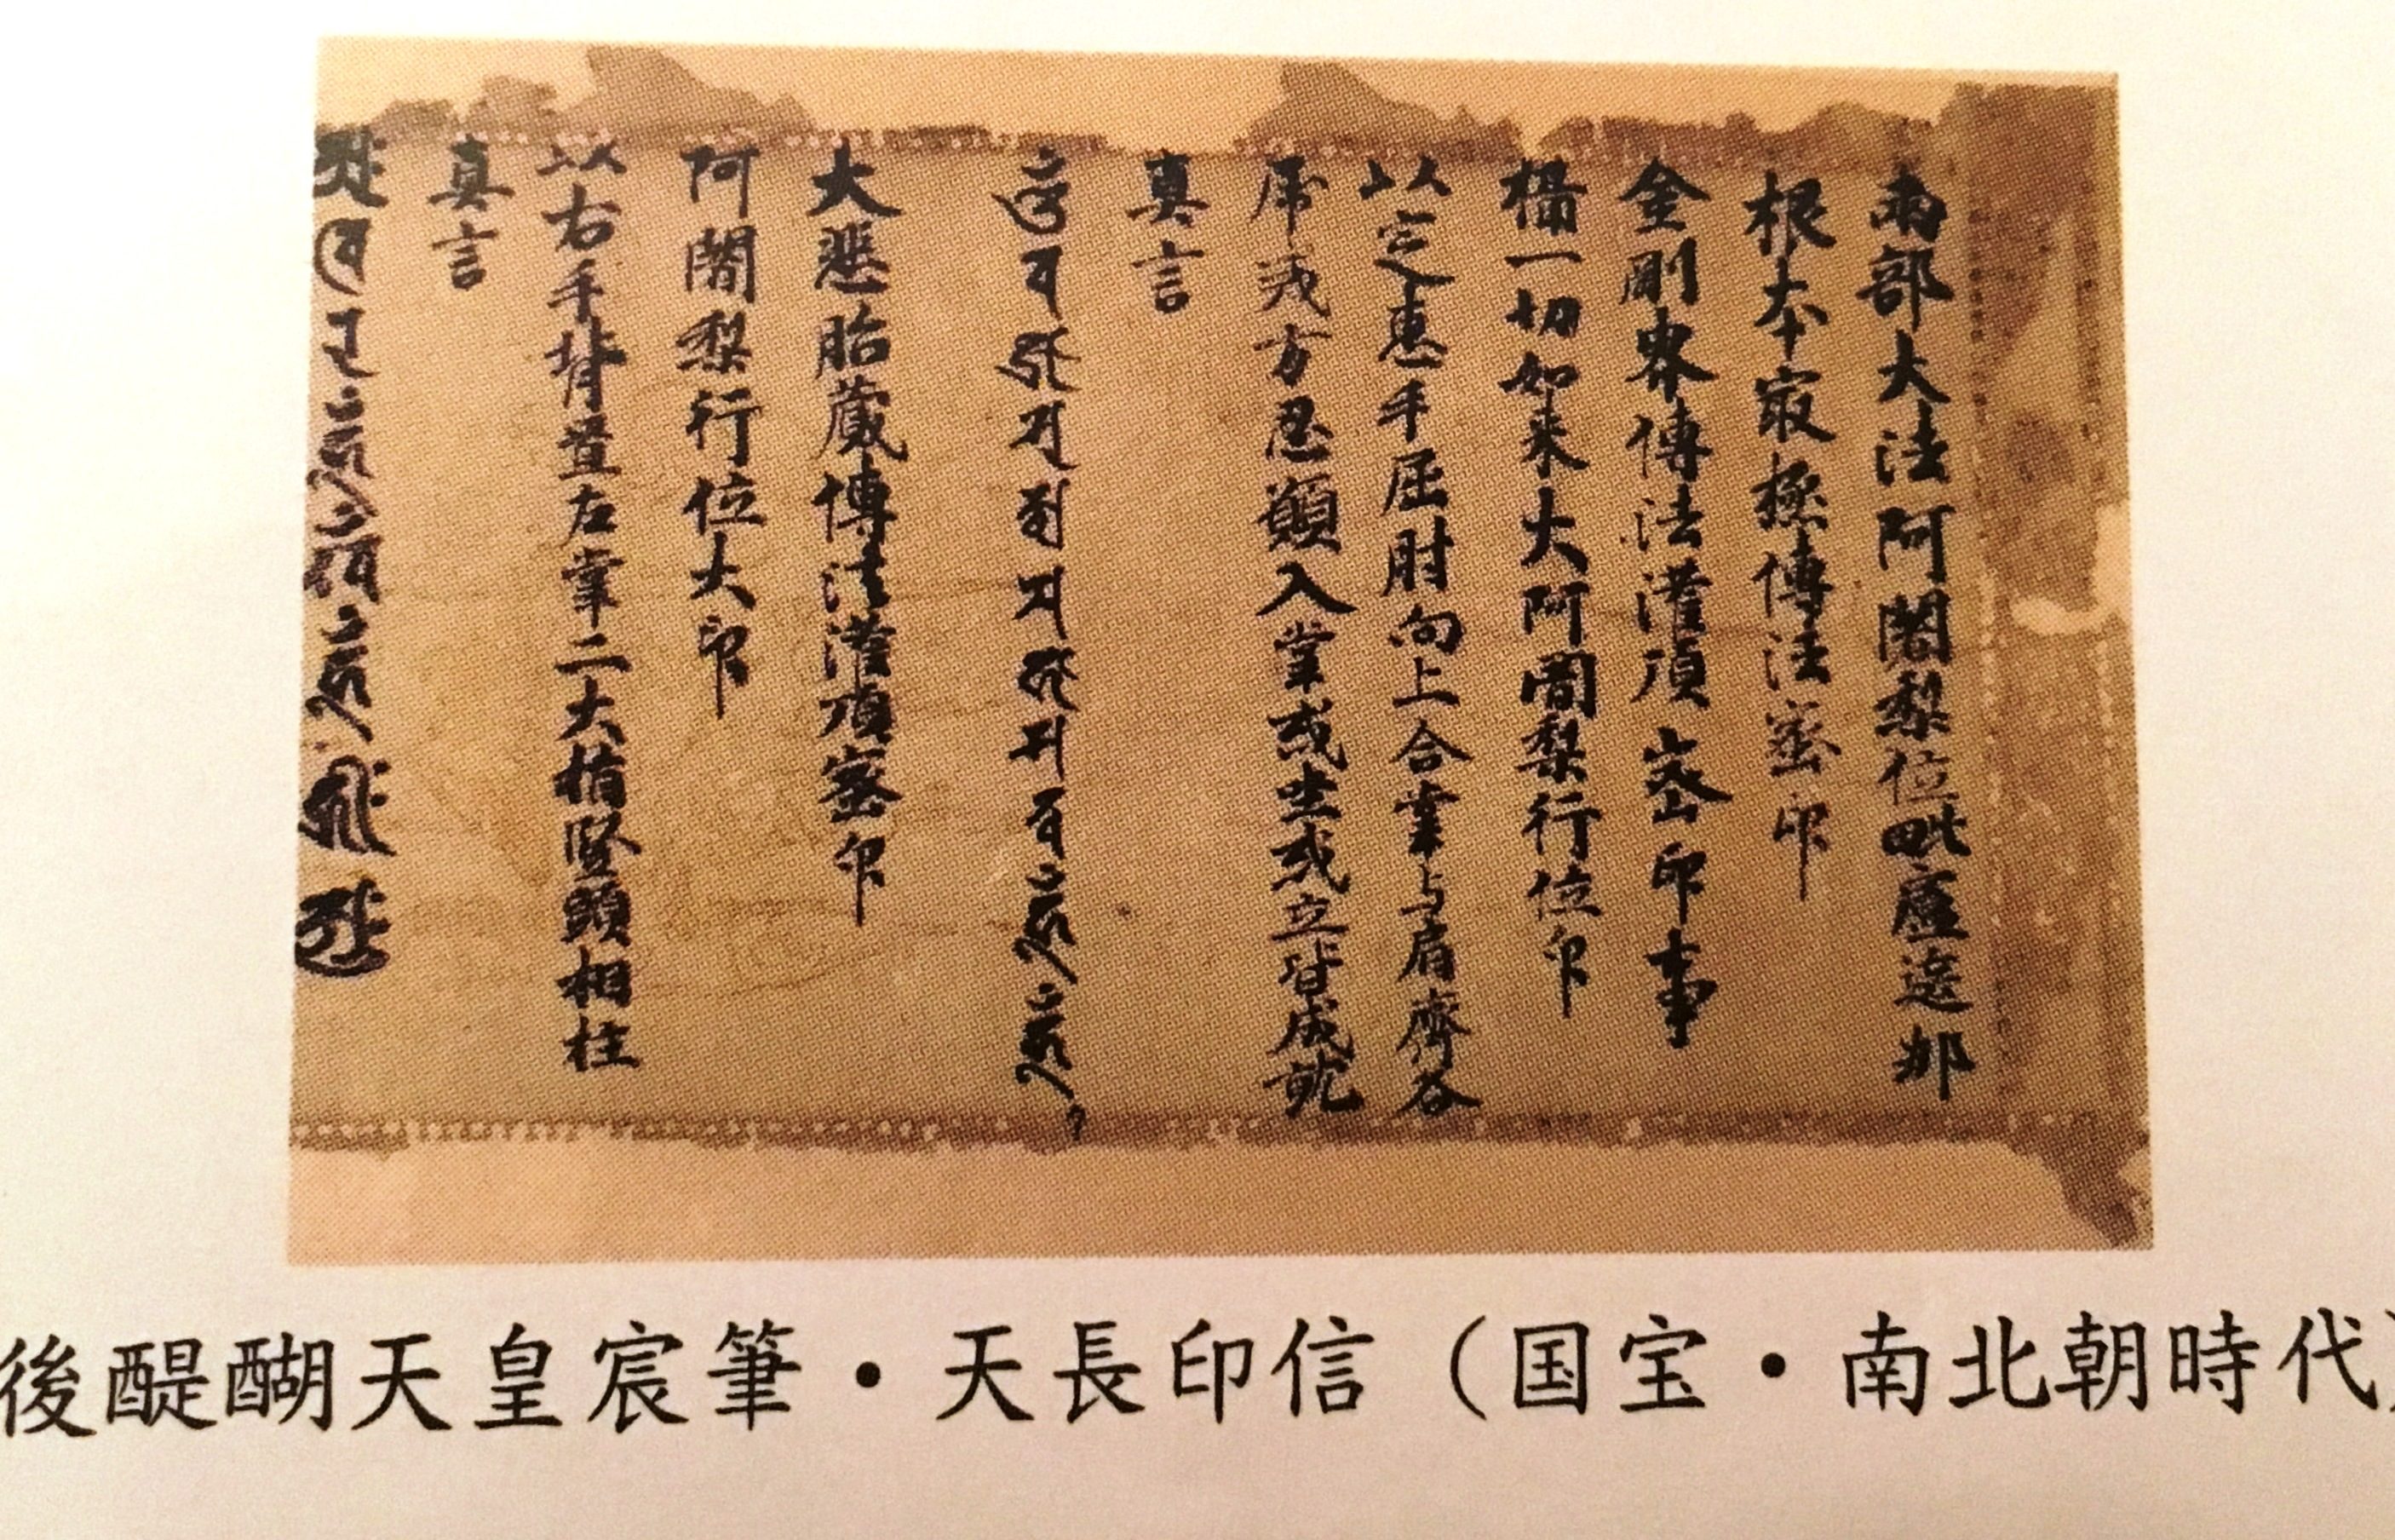 両部大法阿闍梨位毗盧遮那
根本最極傳法密印
金剛界傳法灌頂密印事
攝一切如来大阿闍梨行位印
以定惠手屈肘向上合掌与肩齊各
屈戒方忍願入掌或坐或立皆成就
真言
大悲胎蔵傳法灌頂密印
阿闍梨行位大印
以右手背置左掌二大指竪頭相柱
真言
後醍醐天皇宸筆・天長印信(国宝・南北朝時代)